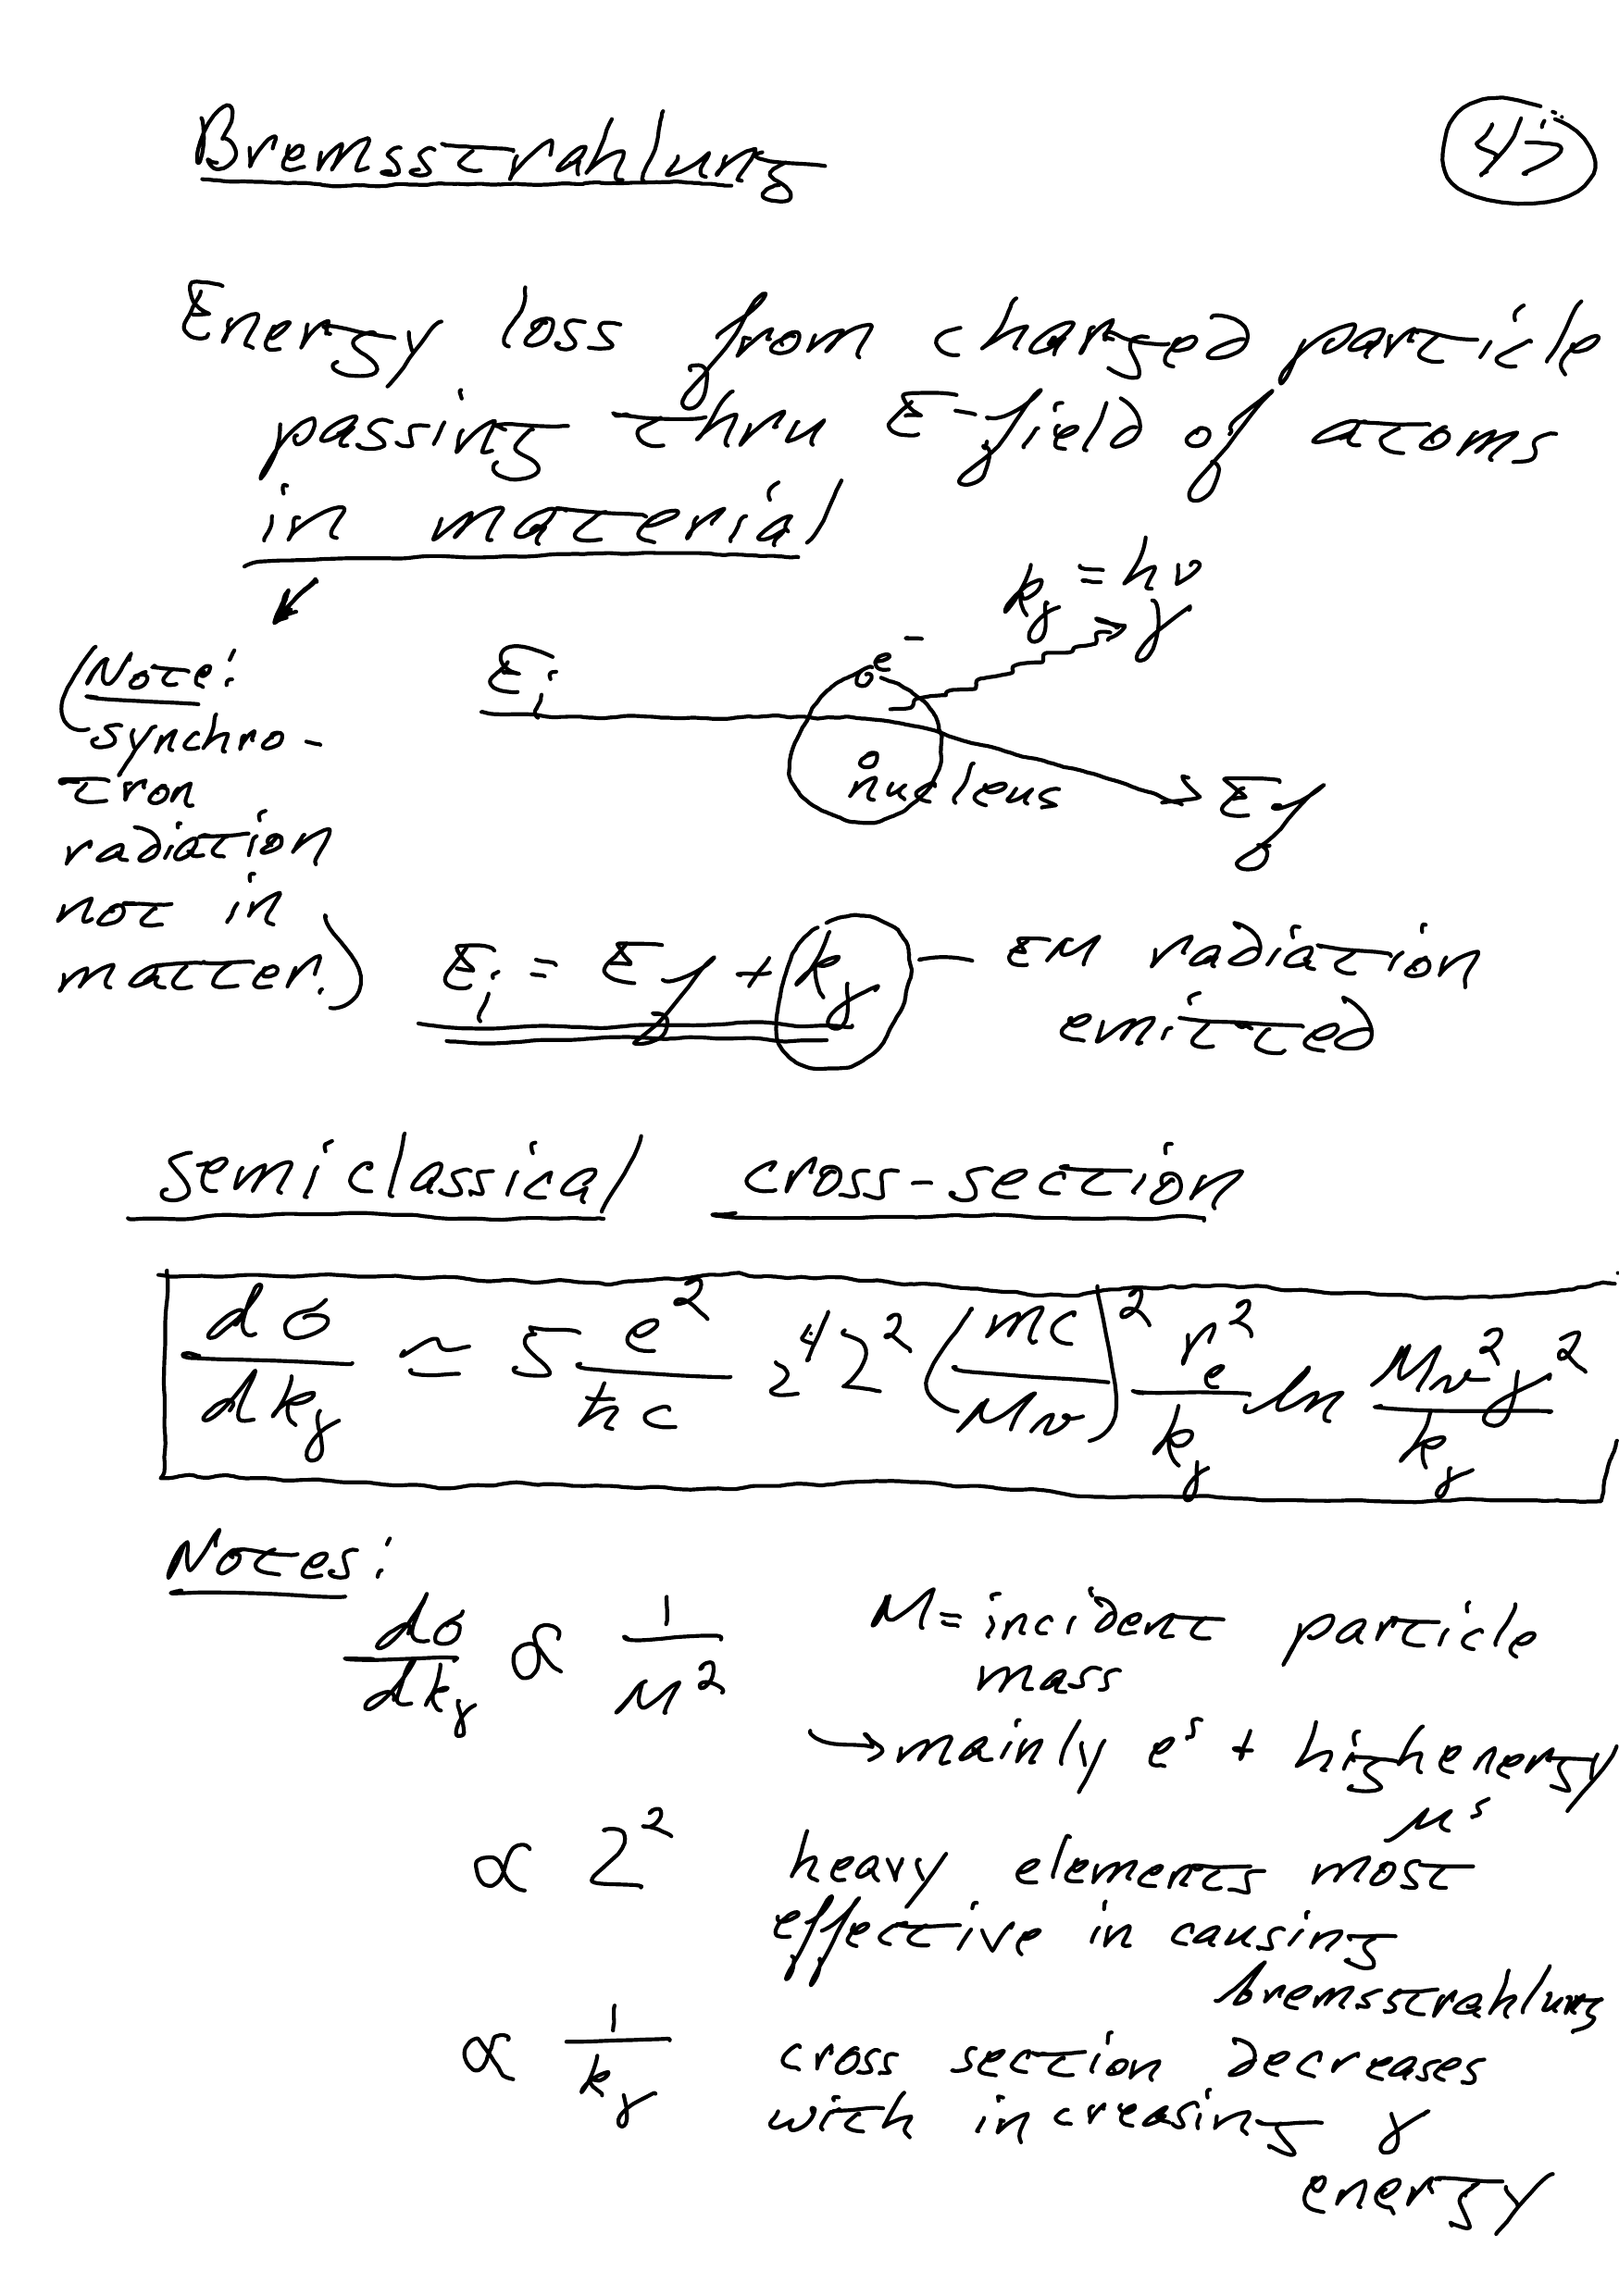 Bremsstrahlung
47
Energy loss from charged particle
passing thru E-field of atoms
in material
(Note:
synchro-
tron
radiation
not in
matter.)
k_γ = hν
γ
E_i
e^-
nucleus
E_f
E_i = E_f + k_γ — EM radiation
emitted
semiclassical cross-section
dσ/dk_γ ≃ 5 e^2/ħc z^4 Z^2 (mc/Mv)^2 r_e^2/k_γ ln Mv^2γ^2/k_γ
Notes:
dσ/dk_γ ∝ 1/M^2 M = incident particle
mass
→ mainly e^s + high energy
μ^s
∝ Z^2 heavy elements most
effective in causing
bremsstrahlung
∝ 1/k_γ cross section decreases
with increasing γ
energy